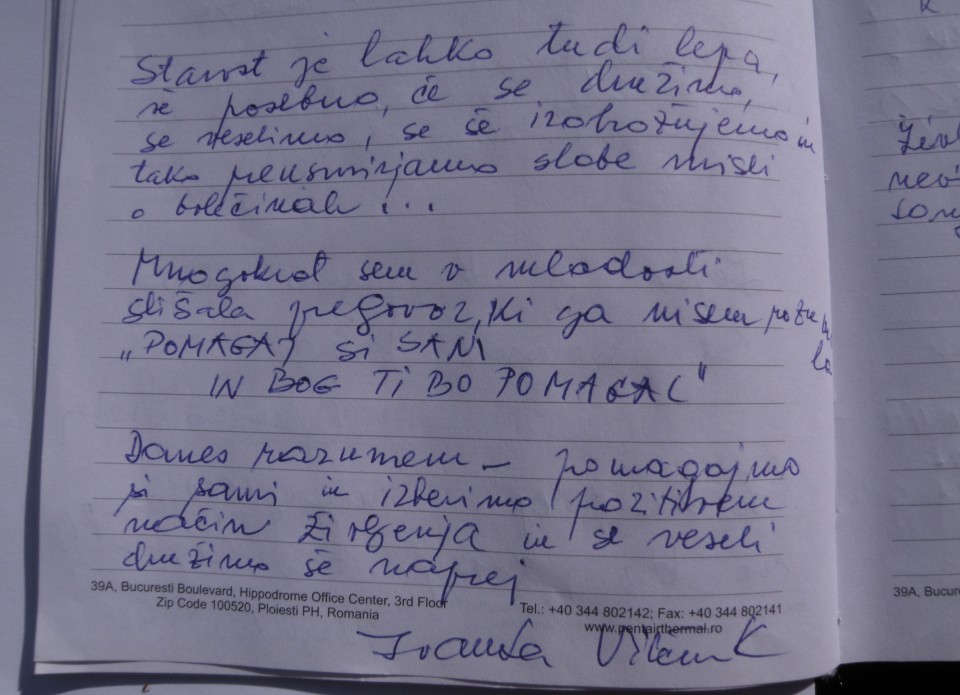 Starost je lahko tudi lepa,
še posebno, če se družimo,
se veselimo, se še izobražujemo in
tako preusmirjamo slabe misli
o bolečinah ...
Mnogokrat sem v mladosti
slišala pregovor, ki ga nisem pozna
la
„POMAGAJ SI SAM
IN BOG TI BO POMAGAL"
Danes razumem – pomagajmo
si sami in izberimo pozitiven
način življenja in se veseli
družimo še naprej
39A, Bucuresti Boulevard, Hippodrome Office Center, 3rd Floor
Zip Code 100520, Ploiesti PH, Romania
Tel.: +40 344 802142; Fax: +40 344 802141
www.pentairthermal.ro
Ivanka
K
živl
39A, Bucur